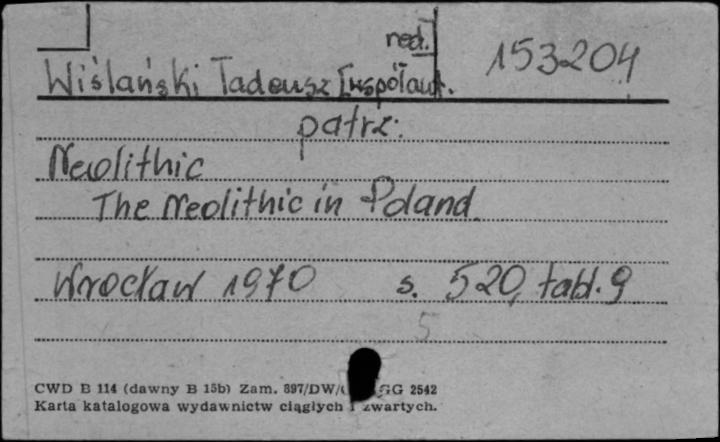 red. 153204
Wiślański Tadeusz [współaut.
patrz:
Neolithic
The Neolithic in Poland
Wrocław 1970 s. 520, tabl. 9
5
CWD B 114 (dawny B 15b) Zam. 897/DW/ GG 2542
Karta katalogowa wydawnictw ciągłych i zwartych.